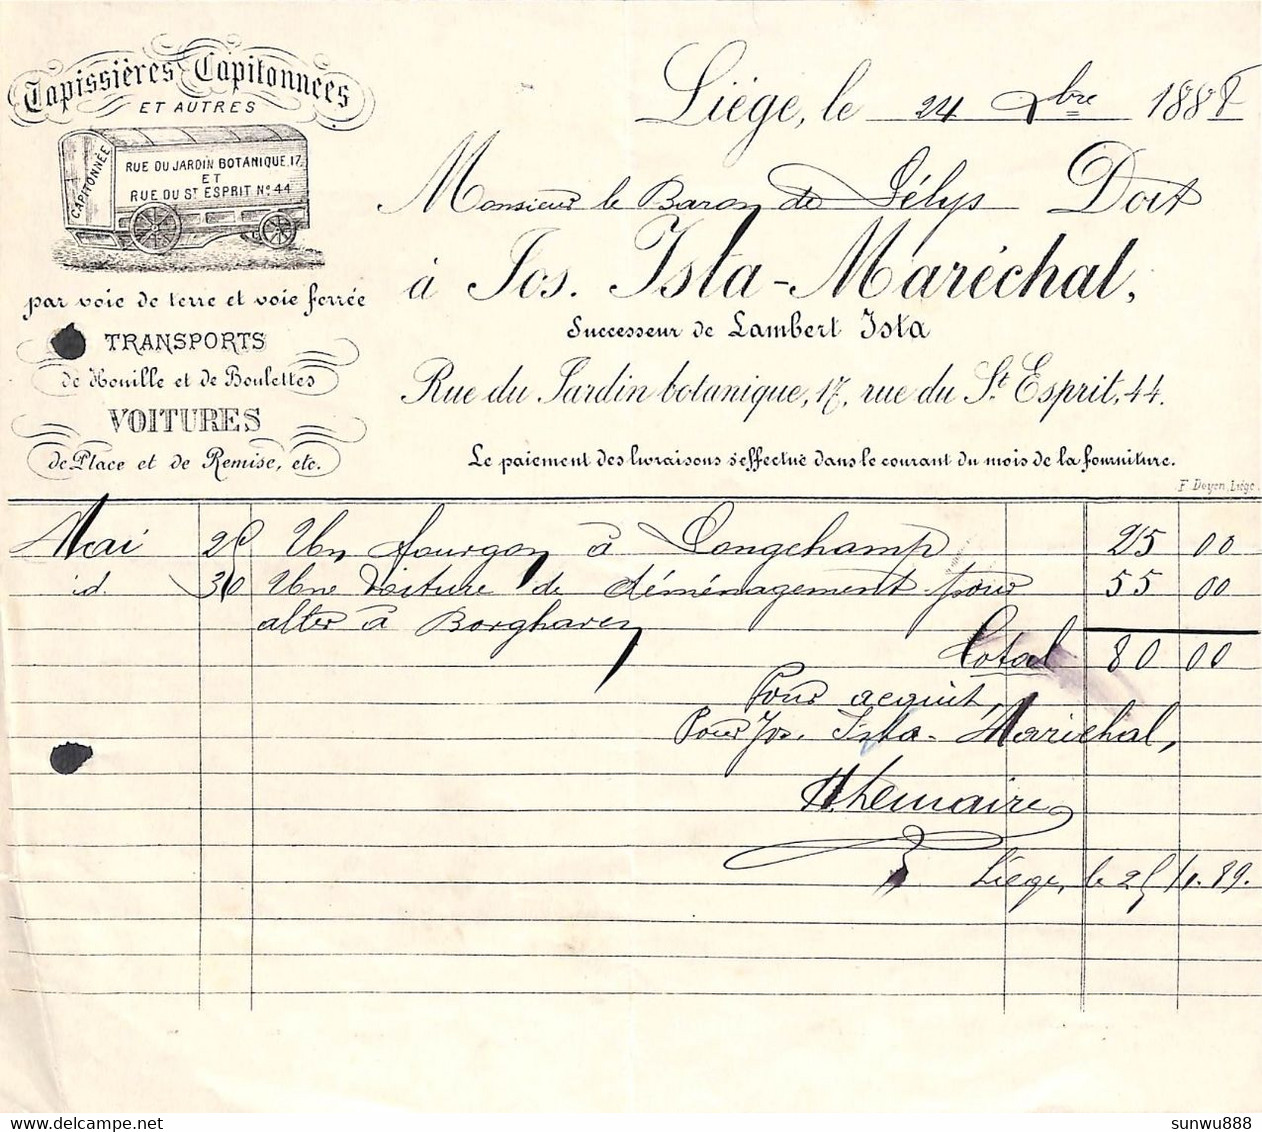 Tapissières Capitonnées
ET AUTRES
CAPITONNÉE
RUE DU JARDIN BOTANIQUE 17
ET
RUE DU ST ESPRIT No 44
par voie de terre et voie ferrée
TRANSPORTS
de Houille et de Boulettes
VOITURES
de Place et de Remise, etc.
Liége, le 24 Xbre 1888
Monsieur le Baron de Sélys Doit
à Jos. Ista-Maréchal,
Successeur de Lambert Ista
Rue du Jardin botanique, 17, rue du St. Esprit, 44.
Le paiement des livraisons s'effectue dans le courant du mois de la fourniture.
F. Doyen, Liége.
Mai 25 Un fourgon à Longchamp 25 00
id. 30 Une voiture de déménagement pour 55 00
aller à Borgharen
Total 80 00
Pour acquit,
Pour Jos. Ista-Maréchal,
H. Lemaire
Liége, le 25/1.89.
sunwu888